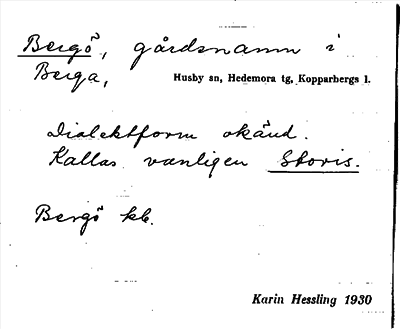 Bergö, gårdsnamn i
Berga, Husby sn, Hedemora tg, Kopparbergs l.
Dialektform okänd.
Kallas vanligen Storis.
Bergö kb.
Karin Hessling 1930